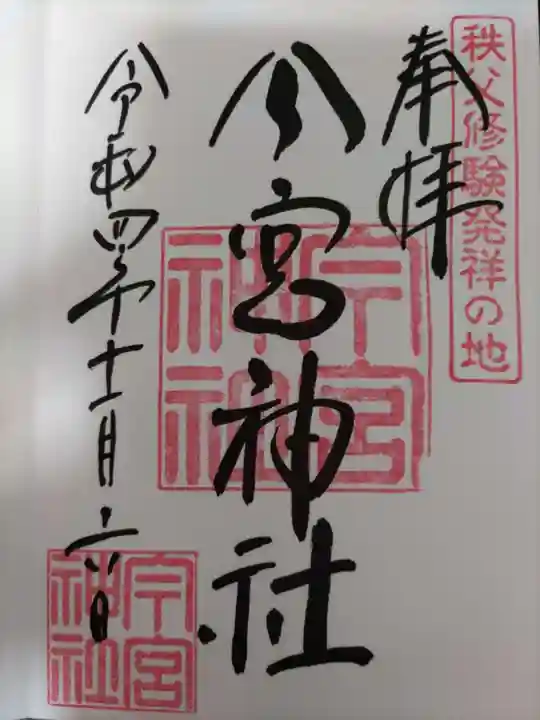 秩父修験発祥の地
奉拝
今宮神社
今宮神社
令和四年十一月六日
今宮神社